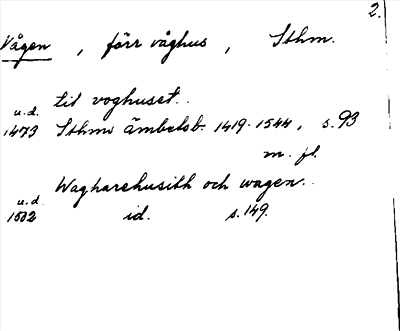 2.
Vågen , förr våghus , Sthm.
til voghuset..
u.d.
1473 Sthms ämbetsb. 1419-1544, s.93
m. fl.
Wagharehusith och wagen..
u.d.
1502 id. s.149.